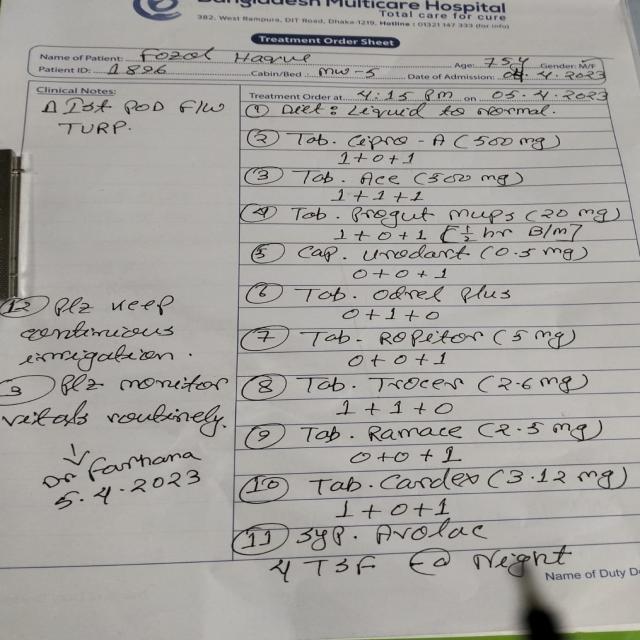 Bangladesh Multicare Hospital
Total care for cure
382, West Rampura, DIT Road, Dhaka-1219, Hotline : 01321 147 333 (for info)
Treatment Order Sheet
Name of Patient: Fozol Haque Age: 75y Gender: M/F
Patient ID: 1896 Cabin/Bed MW-5 Date of Admission: 04.4.2023
Clinical Notes:
Δ 1st POD F/W
TURP.
12 Plz keep
continuous
irrigation.
Plz monitor
vitals routinely.
Dr Farhana
5.4.2023
Treatment Order at 4:15 pm on 05.4.2023
1 Diet: Liquid to normal.
2 Tab. Cipro-A (500 mg)
1+0+1
3 Tab. Ace (500 mg)
1+1+1
4 Tab. Progut mups (20 mg)
1+0+1 [½ hr B/m]
5 Cap. Urodart (0.5 mg)
0+0+1
6 Tab. Odrel Plus
0+1+0
7 Tab. Ropitor (5 mg)
0+0+1
8 Tab. Trocer (2.6 mg)
1+1+0
9 Tab. Ramace (2.5 mg)
0+0+1
10 Tab. Cardex (3.12 mg)
1+0+1
11 Syp. Avolac
4 TSF @ Night
Name of Duty D